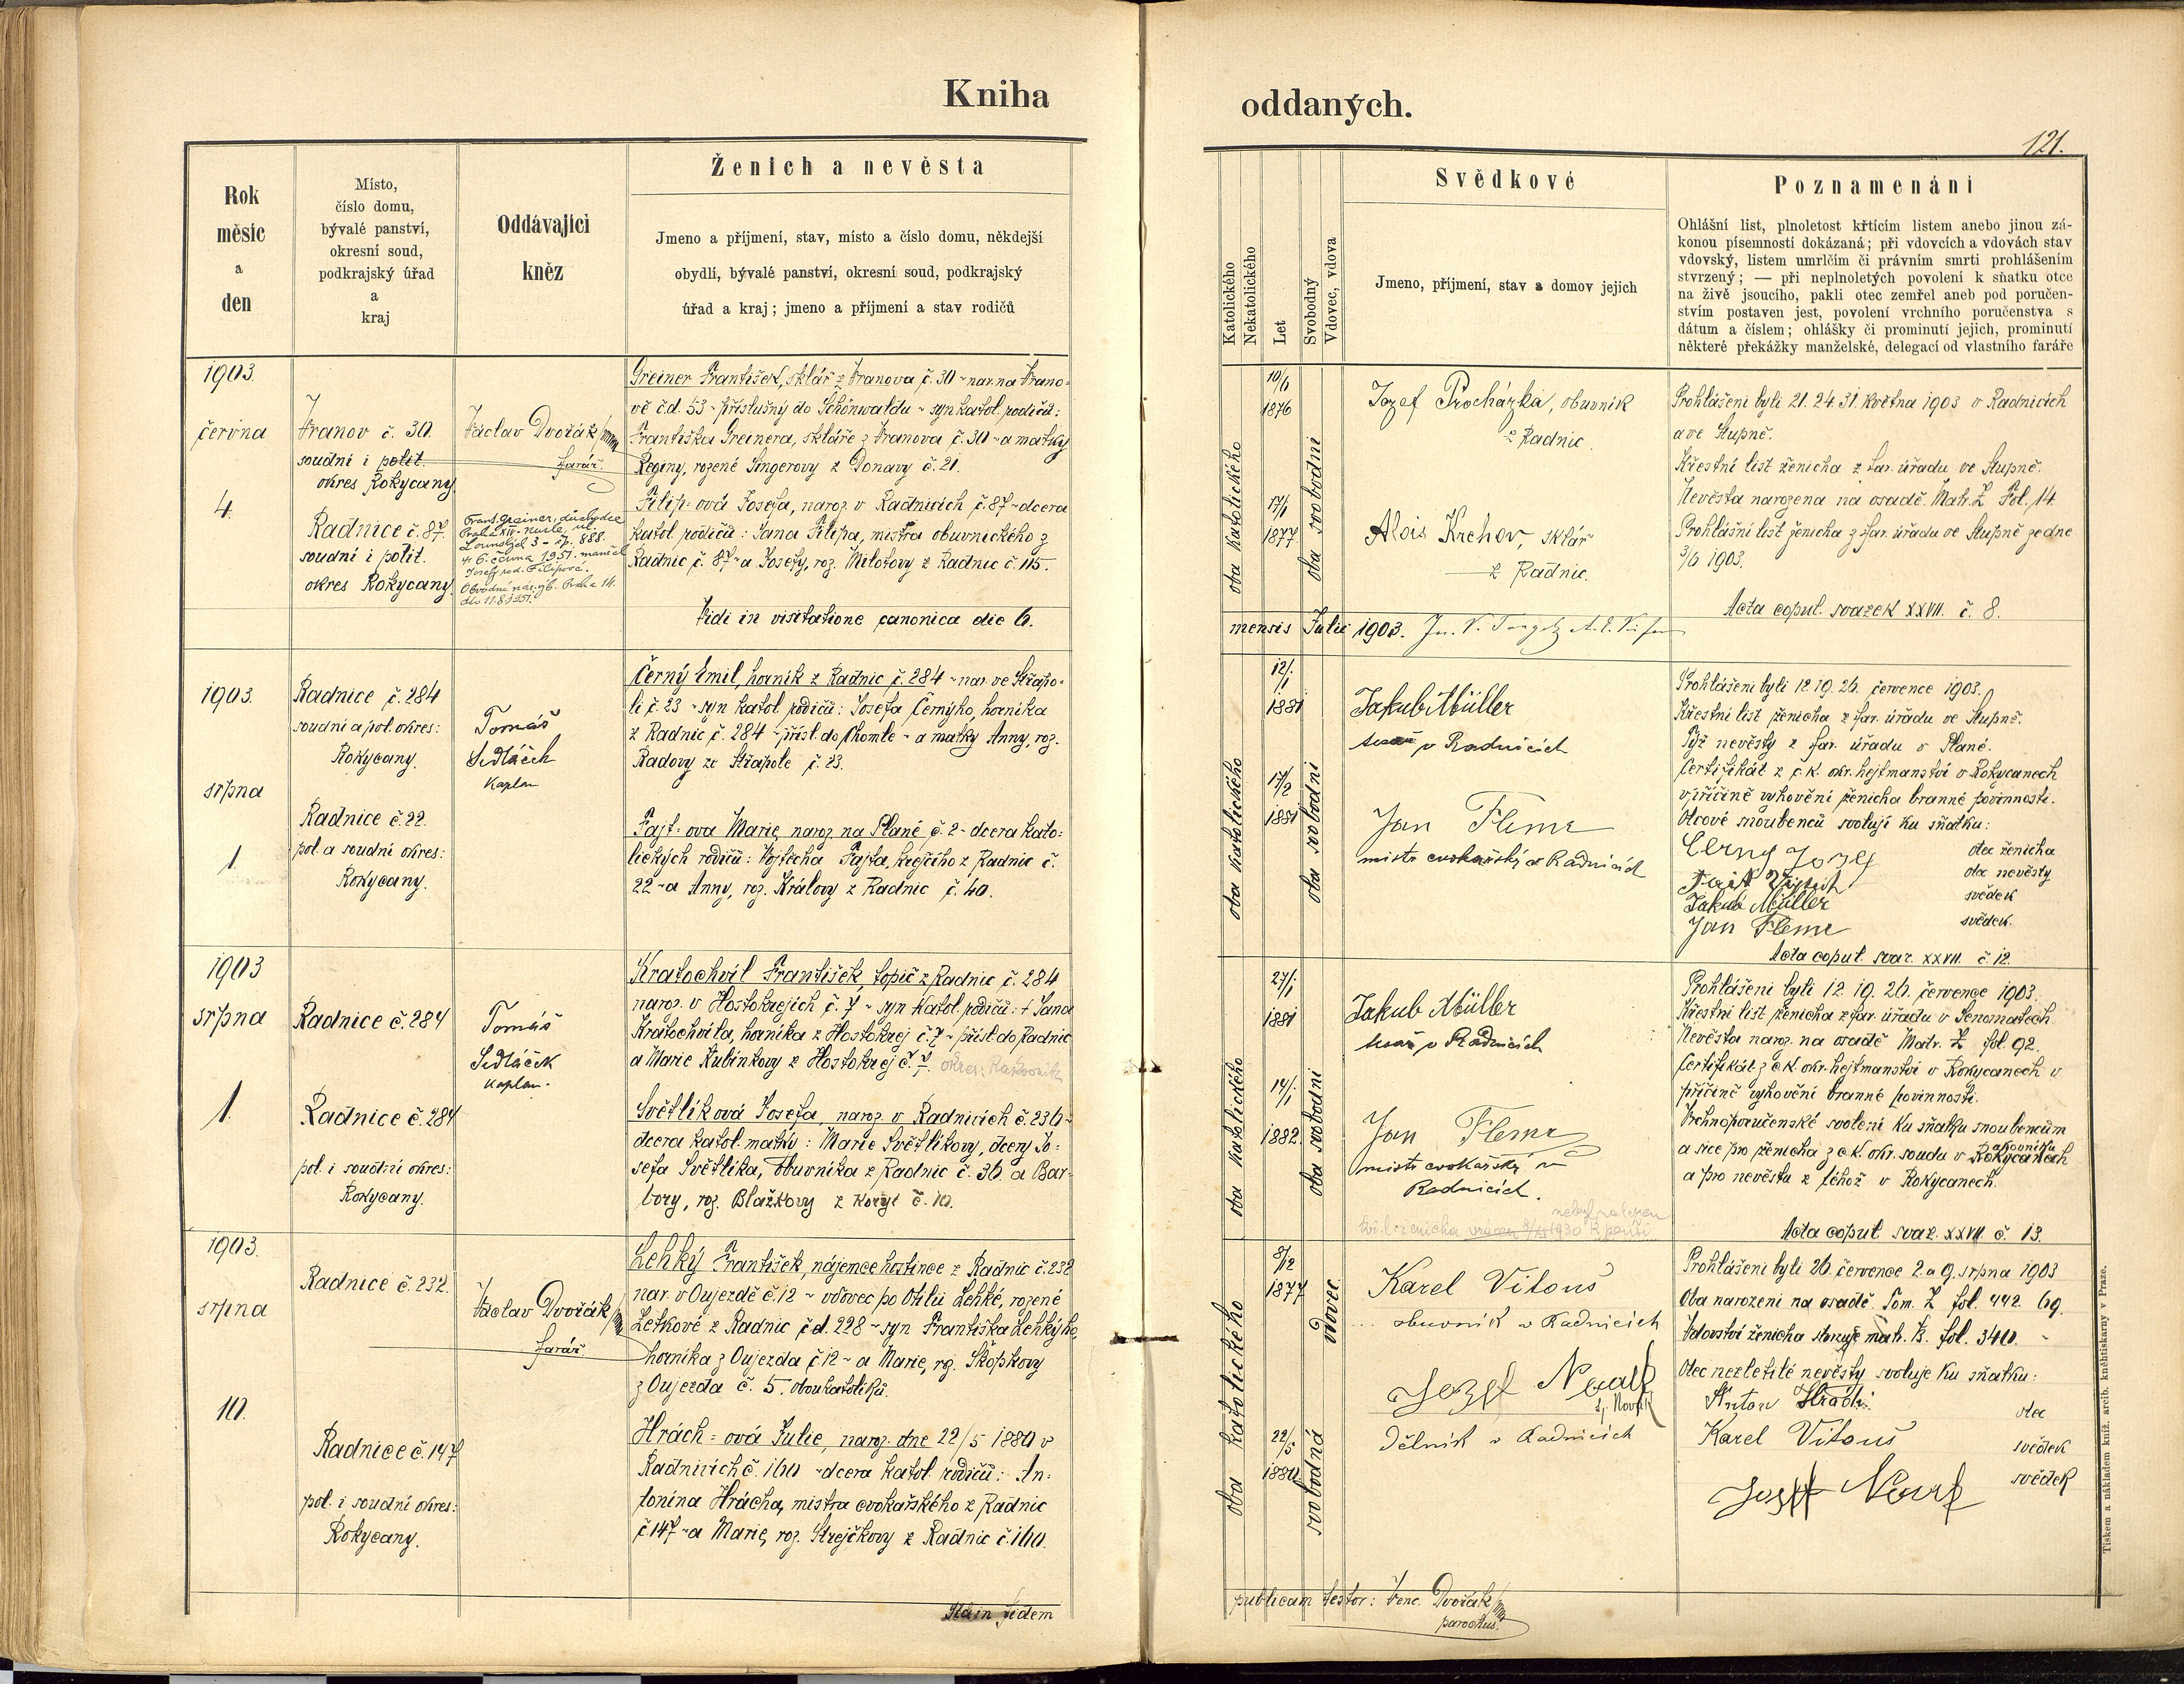 Kniha
oddaných.
121.
Rok
měsíc
a
den
Místo,
číslo domu,
bývalé panství,
okresní soud,
podkrajský úřad
a
kraj
Oddávající
kněz
Ženich a nevěsta
Jmeno a příjmení, stav, místo a číslo domu, někdejší
obydlí, bývalé panství, okresní soud, podkrajský
úřad a kraj; jmeno a příjmení a stav rodičů
Katolického
Nekatolického
Let
Svobodný
Vdovec, vdova
Svědkové
Jmeno, příjmení, stav a domov jejich
Poznamenání
Ohlášní list, plnoletost křtícím listem anebo jinou zá-
konou písemností dokázaná; při vdovcích a vdovách stav
vdovský, listem umrlčím či právním smrti prohlášením
stvrzený; — při neplnoletých povolení k sňatku otce
na živě jsoucího, pakli otec zemřel aneb pod poručen-
stvím postaven jest, povolení vrchního poručenstva s
dátum a číslem; ohlášky či prominutí jejich, prominutí
některé překážky manželské, delegací od vlastního faráře
1903.
června
4.
Vranov č. 30.
soudní i polit.
okres Rokycany.
Radnice č. 87.
soudní i polit.
okres Rokycany.
Václav Dvořák
farář.
Frant. Greiner, důchodce
Praha XIV-Nusle, ul.
Lounských 3 - čp. 888.
† 6. června 1951. manžel
Josefy roz. Filipové.
Obvodní nár. výb. Praha 14.
dto 11.8.1951.
Greiner František, sklář z Vranova č. 30 - nar. na Vrano-
vě č.d. 53 - příslušný do Schönwaldu - syn katol. rodičů:
Františka Greinera, skláře z Vranova č. 30 - a matky
Reginy, rozené Singerovy z Donavy č. 21.
Filip-ová Josefa, naroz. v Radnicích č. 87 - dcera
katol. rodičů: Jana Filipa, mistra obuvnického z
Radnic č. 87 - a Josefy, roz. Milotovy z Radnic č. 115.
Vidi in visitatione canonica die 6.
oba katolického
10/6
1876
17/6
1877
oba svobodni
Jozef Procházka, obuvník
z Radnic.
Alois Krehov, sklář
z Radnic.
Prohlášeni byli 21. 24. 31. května 1903 v Radnicích
a ve Stupně.
Křestní list ženicha z far. úřadu ve Stupně.
Nevěsta narozena na osadě. Matr. Z Fol. 14.
Prohlášní list ženicha z far. úřadu ve Stupně ze dne
3/6 1903.
Acta copul. svazek XXVII. č. 8.
mensis Julii 1903.
1903.
srpna
1.
Radnice č. 284
soudní a pol. okres:
Rokycany.
Radnice č. 22.
pol. a soudní okres:
Rokycany.
Tomáš
Sedláček
kaplan
Černý Emil, horník z Radnic č. 284 - nar. ve Střapo-
li č. 23 - syn katol. rodičů: Josefa Černýho, horníka
z Radnic č. 284 - přísl. do Chomle - a matky Anny, roz.
Radovy ze Střapole č. 23.
Fajt-ova Marie, naroz. na Plané č. 2 - dcera kato-
lických rodičů: Vojtěcha Fajta, krejčího z Radnic č.
22 - a Anny, roz. Královy z Radnic č. 40.
oba katolického
12/1
1881
17/2
1881
oba svobodni
Jakub Müller
tesař v Radnicích
Jan Fleme
mistr cvokařský v Radnicích
Prohlášeni byli 12. 19. 26. července 1903.
Křestní list ženicha z far. úřadu ve Stupně.
Týž nevěsty z far. úřadu v Plané.
Certifikát z c.k. okr. hejtmanství v Rokycanech
v příčině vyhovění ženicha branné povinnosti.
Otcové snoubenců svolují ku sňatku:
Černý Jozef otec ženicha
Fajt Vojtěch otec nevěsty
Jakub Müller svědek
Jan Fleme svědek.
Acta copul. svaz. XXVII. č. 12.
1903
srpna
1.
Radnice č. 284
Radnice č. 284
pol. i soudní okres:
Rokycany.
Tomáš
Sedláček
kaplan.
Kratochvíl František, topič z Radnic č. 284
naroz. v Hostokrejích č. 7 - syn katol. rodičů: † Jana
Kratochvíla, horníka z Hostokrej č. 7 - přísl. do Radnic
a Marie Kubínkovy z Hostokrej č. 7. okres: Rakovník
Světlíková Josefa, naroz. v Radnicích č. 236 -
dcera katol. matky: Marie Světlíkovy, dcery Jo-
sefa Světlíka, obuvníka z Radnic č. 36. a Bar-
bory, roz. Blažkovy z Koryt č. 10.
oba katolického
27/1
1881
14/1
1882.
oba svobodni
Jakub Müller
tesař v Radnicích
Jan Fleme
mistr cvokařský v
Radnicích.
nebyl nalezen
Prohlášeni byli 12. 19. 26. července 1903.
Křestní list ženicha z far. úřadu v Senomatech.
Nevěsta naroz. na osadě Matr. Z fol. 92.
Certifikát z c.k. okr. hejtmanství v Rokycanech v
příčině vyhovění branné povinnosti.
Vrchnoporučenské svolení ku sňatku snoubencům
a sice pro ženicha z c.k. okr. soudu v Rokycanech Rakovníku
a pro nevěstu z téhož v Rokycanech.
Acta copul. svaz. XXVII. č. 13.
1903.
srpna
10.
Radnice č. 232.
Radnice č. 147
pol. i soudní okres:
Rokycany.
Václav Dvořák
farář.
Lehký František, nájemce hostince z Radnic č. 232
nar. v Oujezdě č. 12 - vdovec po Otilii Lehké, rozené
Letkové z Radnic č.d. 228 - syn Františka Lehkýho,
horníka z Oujezda č. 12 - a Marie, roz. Skopkovy
z Oujezda č. 5. obou katolíků.
Hrách-ová Julie, naroz. dne 22/5 1880 v
Radnicích č. 160 - dcera katol. rodičů: An-
tonína Hrácha, mistra cvokařského z Radnic
č. 147 - a Marie, roz. Strejčkovy z Radnic č. 160.
oba katolického
8/12
1877
22/5
1880
vdovec
svobodná
Karel Vitouš
obuvník v Radnicích
Jozef Novák
dělník v Radnicích
Prohlášeni byli 26. července 2. a 9. srpna 1903
Oba narozeni na osadě. Tom. Z fol. 442. 69.
Vdovství ženicha stvrzuje matr. B. fol. 340.
Otec nezletilé nevěsty svoluje ku sňatku:
Anton Hrách otec
Karel Vitouš svědek
Josef Novák svědek
In fidem
publicam testor: Venc. Dvořák
parochus.
Tiskem a nákladem kníž. arcib. knihtiskárny v Praze.